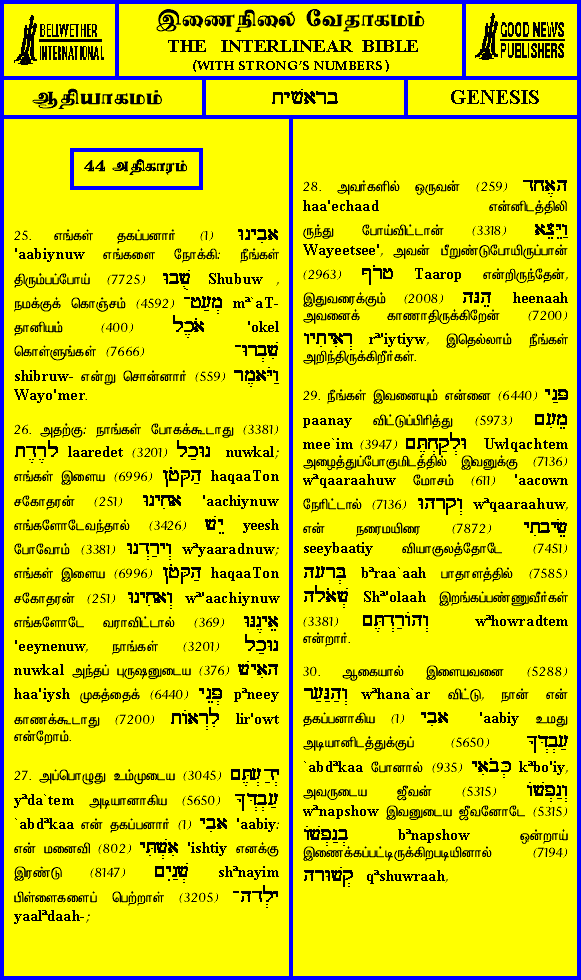 BELLWETHER
INTERNATIONAL
இணைநிலை வேதாகமம்
THE INTERLINEAR BIBLE
(WITH STRONG'S NUMBERS)
GOOD NEWS
PUBLISHERS
ஆதியாகமம்
בראשית
GENESIS
44 அதிகாரம்
25. எங்கள் தகப்பனார் (1) אבינו
'aabiynuw எங்களை நோக்கி: நீங்கள்
திரும்பப்போய் (7725) שֻׁבוּ Shubuw ,
நமக்குக் கொஞ்சம் (4592) מְעַט־ mªʻaT-
தானியம் (400) אֹכֶל 'okel
கொள்ளுங்கள் (7666) שִׁבְרוּ־
shibruw- என்று சொன்னார் (559) וַיֹּאמֶר
Wayo'mer.
26. அதற்கு: நாங்கள் போகக்கூடாது (3381)
לָרֶדֶת laaredet (3201) נוּכַל nuwkal;
எங்கள் இளைய (6996) הַקּטֹן haqaaTon
சகோதரன் (251) אחִינוּ 'aachiynuw
எங்களோடேவந்தால் (3426) יֵשׁ yeesh
போவோம் (3381) וְירַדְנוּ wªyaaradnuw;
எங்கள் இளைய (6996) הַקּטֹן haqaaTon
சகோதரன் (251) וְאחִינוּ wª'aachiynuw
எங்களோடே வராவிட்டால் (369) אֵינֶנּוּ
'eeynenuw, நாங்கள் (3201) נוּכַל
nuwkal அந்தப் புருஷனுடைய (376) האִישׁ
haa'iysh முகத்தைக் (6440) פְּנֵי pªneey
காணக்கூடாது (7200) לִרְאוֹת lir'owt
என்றோம்.
27. அப்பொழுது உம்முடைய (3045) יְדַעְתֶּם
yªdaʻtem அடியானாகிய (5650) עַבְדְּךָ
ʻabdªkaa என் தகப்பனார் (1) אבִי 'aabiy:
என் மனைவி (802) אִשְׁתִּי 'ishtiy எனக்கு
இரண்டு (8147) שְׁנַיִם shªnayim
பிள்ளைகளைப் பெற்றாள் (3205) ילְדה־
yaalªdaah-;
28. அவர்களில் ஒருவன் (259) האֶחד
haa'echaad என்னிடத்திலி
ருந்து போய்விட்டான் (3318) וַיֵּצֵא
Wayeetsee', அவன் பீறுண்டுபோயிருப்பான்
(2963) טרֹף Taarop என்றிருந்தேன்,
இதுவரைக்கும் (2008) הֵנּה heenaah
அவனைக் காணாதிருக்கிறேன் (7200)
רְאִיתִיו rª'iytiyw, இதெல்லாம் நீங்கள்
அறிந்திருக்கிறீர்கள்.
29. நீங்கள் இவனையும் என்னை (6440) פּנַי
paanay விட்டுப்பிரித்து (5973) מֵעִם
meeʻim (3947) וּלְקַחְתֶּם Uwlqachtem
அழைத்துப்போகுமிடத்தில் இவனுக்கு (7136)
wªqaaraahuw மோசம் (611) 'aacown
நேரிட்டால் (7136) וְקרהוּ wªqaaraahuw,
என் நரைமயிரை (7872) שֵׂיבתִי
seeybaatiy வியாகுலத்தோடே (7451)
בְּרעה bªraaʻaah பாதாளத்தில் (7585)
שְׁאֹלה Shª'olaah இறங்கப்பண்ணுவீர்கள்
(3381) וְהוֹרַדְתֶּם wªhowradtem
என்றார்.
30. ஆகையால் இளையவனை (5288)
וְהַנַּעַר wªhanaʻar விட்டு, நான் என்
தகப்பனாகிய (1) אבִי 'aabiy உமது
அடியானிடத்துக்குப் (5650) עַבְדְּךָ
ʻabdªkaa போனால் (935) כְּבֹאִי kªbo'iy,
அவருடைய ஜீவன் (5315) וְנַפְשׁוֹ
wªnapshow இவனுடைய ஜீவனோடே (5315)
בְנַפְשׁוֹ bªnapshow ஒன்றாய்
இணைக்கப்பட்டிருக்கிறபடியினால் (7194)
קְשׁוּרה qªshuwraah,